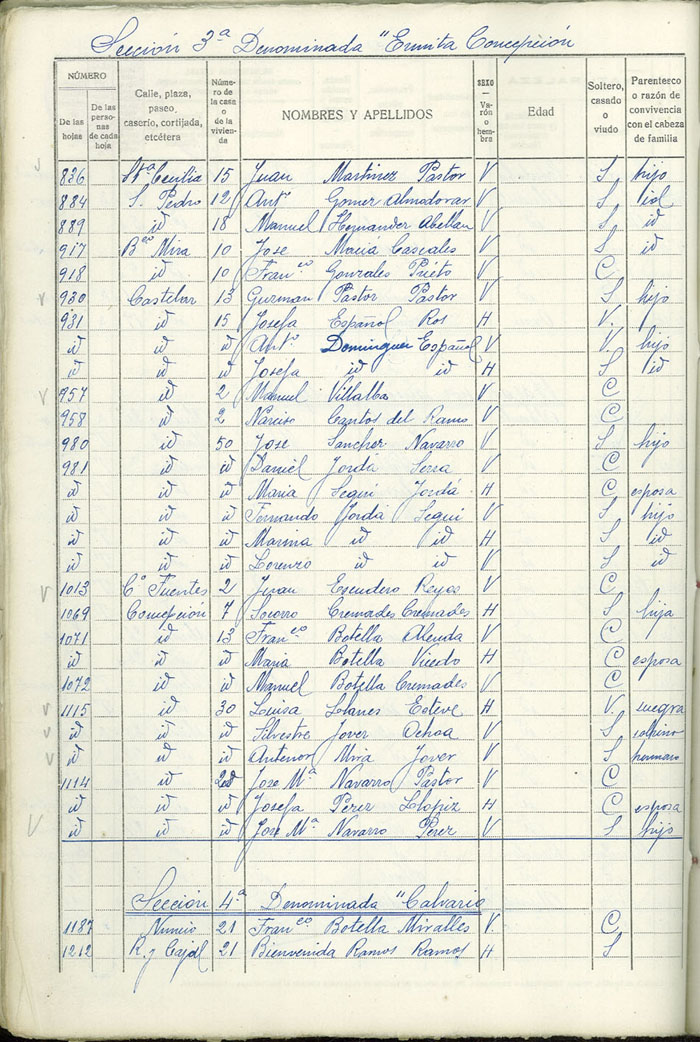 Sección 3ª Denominada "Ermita Concepción
NÚMERO
De las hojas
De las personas de cada hoja
Calle, plaza, paseo, caserío, cortijada, etcétera
Número de la casa o de la vivienda
NOMBRES Y APELLIDOS
SEXO — Varón o hembra
Edad
Soltero, casado o viudo
Parentesco o razón de convivencia con el cabeza de familia
836 Stª Cecilia 15 Juan Martinez Pastor V S hijo
884 S. Pedro 12 Antº Gomez Almodovar V S id
889 id 18 Manuel Hernandez Abellan V S id
917 Bᶜᵒ Mira 10 Jose Maciá Cascales V S id
918 id 10 Franᶜᵒ Gonzales Prieto V C
930 Castelar 13 Guzman Pastor Pastor V S hijo
931 id 15 Josefa Español Ros H V.
id id id Antº Dominguez Español V V. hijo
id id id Josefa id id H S id
957 id 2 Manuel Villalba V C
958 id 2 Narciso Cantos del Ramo V C
980 id 50 Jose Sanchez Navarro V S hijo
981 id id Daniel Jordá Serra V C
id id id Maria Segui Jordá H C esposa
id id id Fernando Jordá Segui V S hijo
id id id Marina id id H S id
id id id Lorenzo id id V S id
1013 Cº Fuentes 2 Juan Escudero Reyes V C
1069 Concepción 7 Socorro Cremades Cremades H S hija
1071 id 13 Franᶜᵒ Botella Alenda V C
id id id Maria Botella Vicedo H C esposa
1072 id id Manuel Botella Cremades V C
1115 id 30 Luisa Llanes Esteve H V. suegra
id id id Silvestre Jover Ochoa V S sobrino
id id id Antenor Mira Jover V S hermano
1114 id id Jose Mª Navarro Pastor V C
id id id Josefa Perez Llopiz H C esposa
id id id Jose Mª Navarro Perez V S hijo
Sección 4ª Denominada "Calvario
1187 21 Franᶜᵒ Botella Miralles V. C
1212 R. y Cajal 21 Bienvenida Ramos Ramos H S